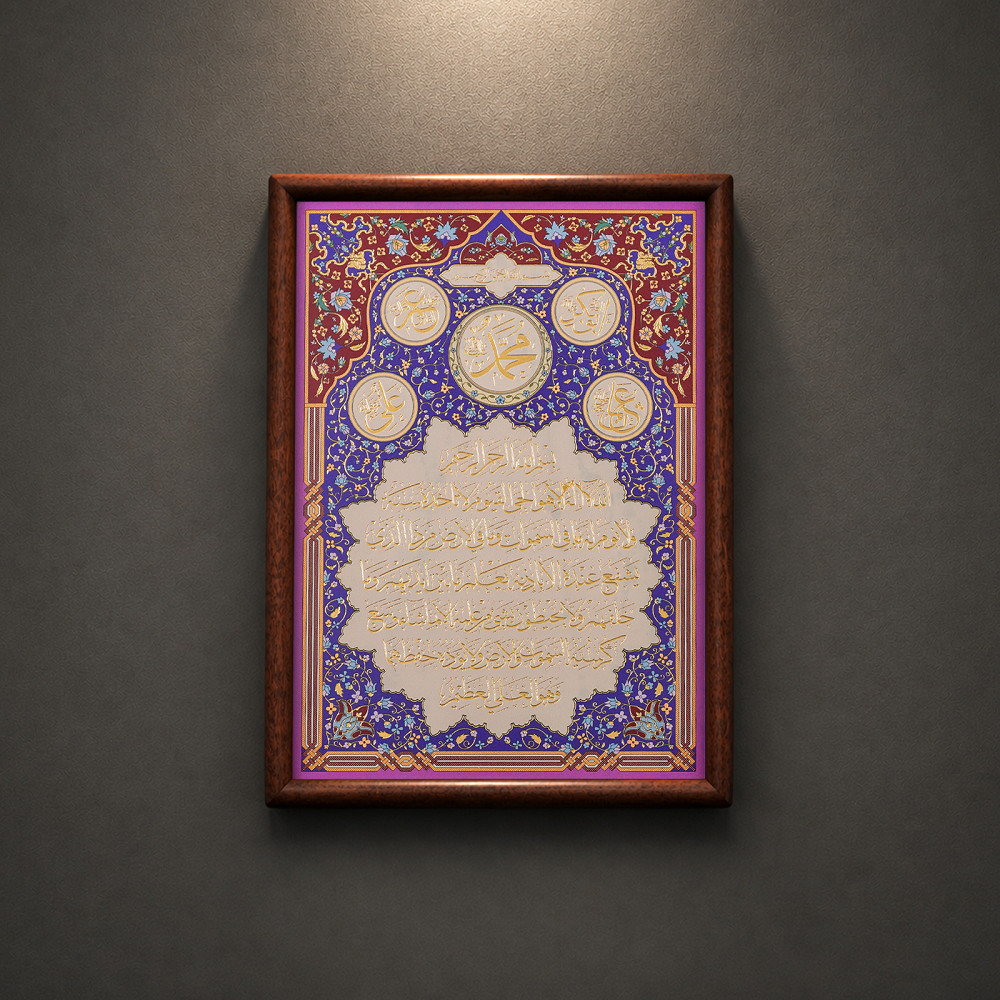 ابوبكر
عمر
محمد
عثمان
علي
بسم الله الرحمن الرحيم
الله لا اله الا هو الحي القيوم لا تاخذه سنة و
لا نوم له ما في السموات وما في الارض من ذا الذي
يشفع عنده الا باذنه يعلم ما بين ايديهم وما
خلفهم ولا يحيطون بشئ من علمه الا بما شاء وسع
كرسيه السموات والارض ولا يوده حفظهما
وهو العلي العظيم